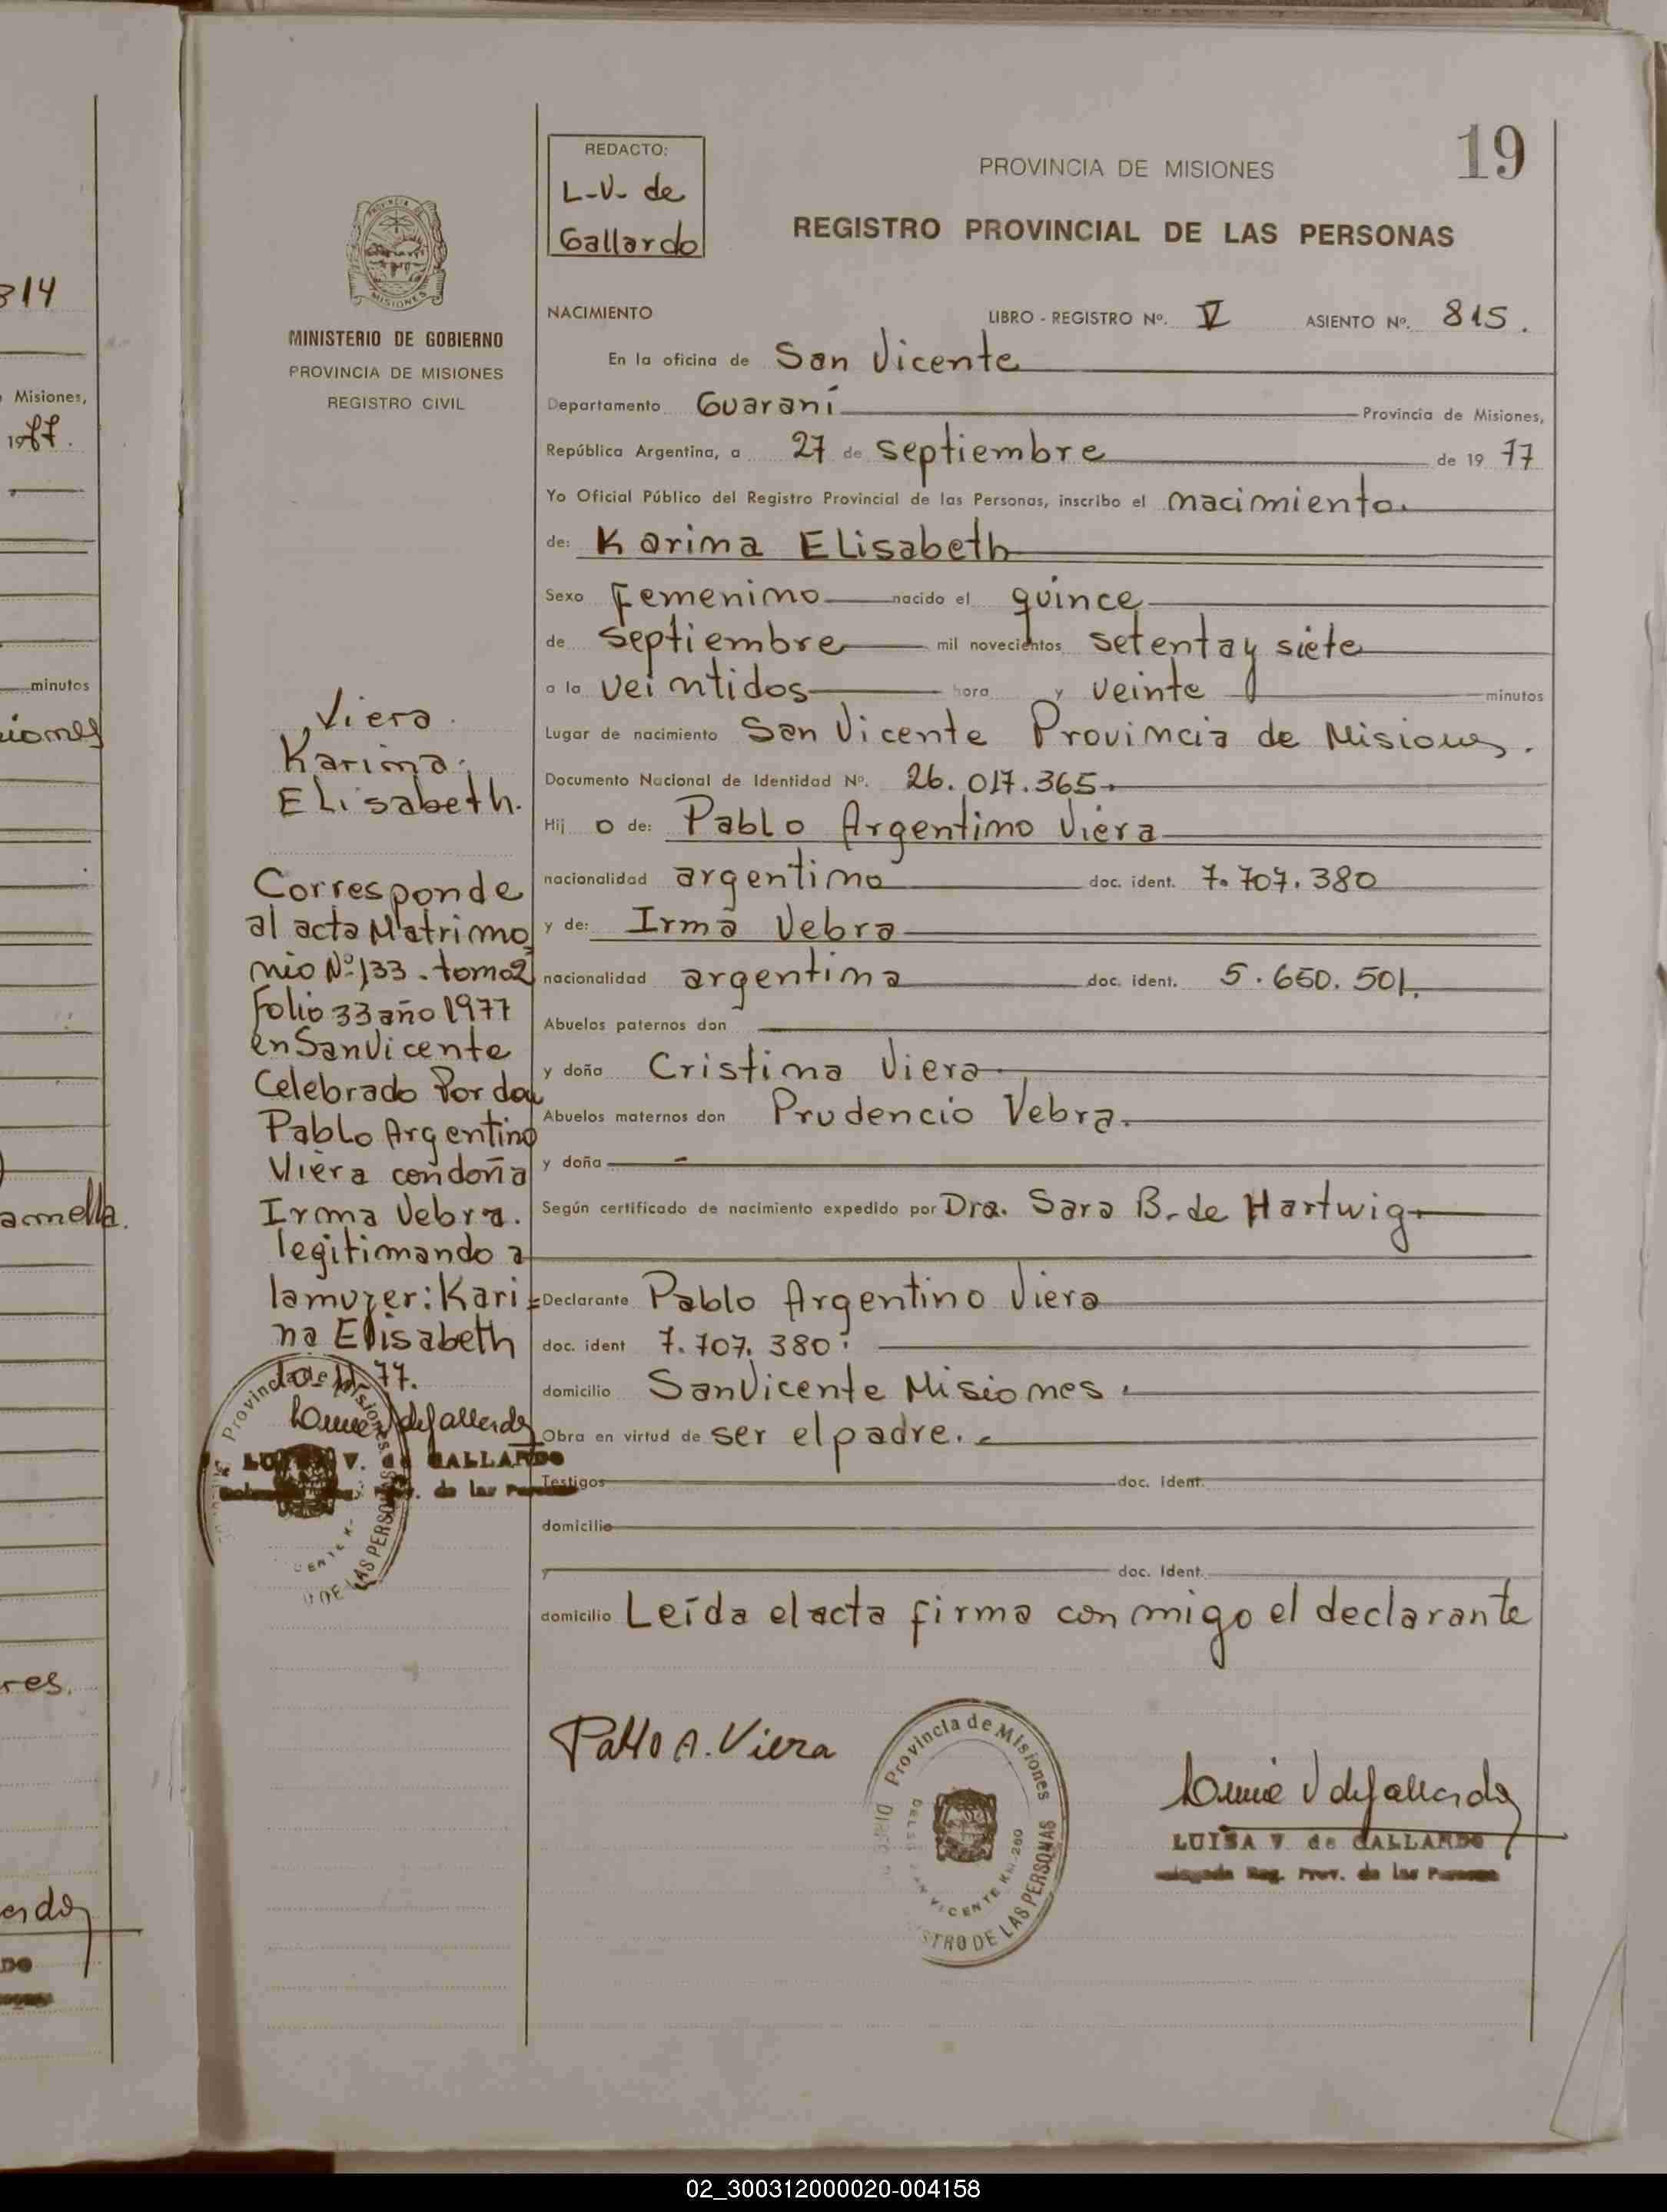 814
Misiones,
1977.
minutos
iones
amella.
res.
19
REDACTO:
L-V- de
Gallardo
PROVINCIA DE MISIONES
REGISTRO PROVINCIAL DE LAS PERSONAS
MISIONES
MINISTERIO DE GOBIERNO
PROVINCIA DE MISIONES
REGISTRO CIVIL
NACIMIENTO LIBRO - REGISTRO Nº. V ASIENTO Nº. 815.
En la oficina de San Vicente
Departamento Guaraní Provincia de Misiones,
República Argentina, a 27 de septiembre de 1977
Yo Oficial Público del Registro Provincial de las Personas, inscribo el nacimiento.
de: Karina ELisabeth
Sexo Femenino nacido el quince
de septiembre mil novecientos setenta y siete
a la veintidos hora y veinte minutos
Lugar de nacimiento San Vicente Provincia de Misiones.
Documento Nacional de Identidad Nº. 26.017.365
Hij o de: Pablo Argentino Viera
nacionalidad argentino doc. ident. 7.707.380
y de: Irma Vebra
nacionalidad argentina doc. ident. 5.650.501.
Abuelos paternos don
y doña Cristina Viera
Abuelos maternos don Prudencio Vebra.
y doña -
Según certificado de nacimiento expedido por Dra. Sara B. de Hartwig
Declarante Pablo Argentino Viera
doc. ident 7.707.380.
domicilio San Vicente Misiones.
Obra en virtud de ser el padre.
Testigos doc. Ident.
domicilio
y doc. Ident.
domicilio Leída el acta firma conmigo el declarante
Viera
Karina
ELisabeth.
Corresponde
al acta Matrimo
nio Nº 133. tomo 2
Folio 33 año 1977
en San Vicente
Celebrado Por don
Pablo Argentino
Viera con doña
Irma Vebra.
legitimando a
la muzer: Kari=
na Elisabeth
10-11-77.
Provincia de Misiones
LUISA V. de GALLARDO
de las
DE LAS PERSONAS
Pablo A. Viera
Provincia de Misiones
SAN VICENTE KM. 260
STRO DE LAS PERSONAS
Luisa V de Gallardo
LUISA V. de GALLARDO
Delegada Reg. Prov. de las Personas
02_300312000020-004158